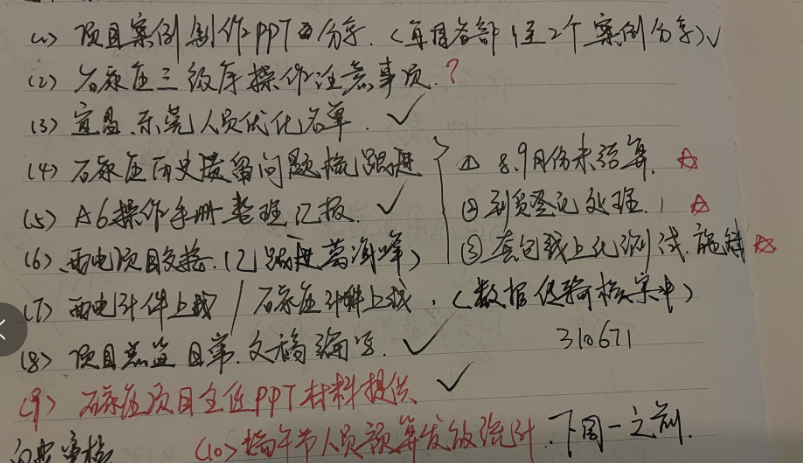 (1) 项目案例制作PPT分享.(每月各部1至2个案例分享)✓
(2) 石家庄三级库操作注意事项.?
(3) 宜昌、东莞人员优化名单. ✓
(4) 石家庄历史遗留问题梳跟进 ① 8.9月份未结算. ☆
(5) A6操作手册整理汇报. ✓ ②到货登记处理. ☆
(6) 西电项目交接.(已跟进 ③ 线上化测试. ☆
(7) 西电计件上线/石家庄计件上线.(数据 核案中)
(8) 项目总监日常.文稿编写. ✓ 310671
(9) 石家庄项目主任PPT材料提供 ✓
(10) 端午节人员预算发放统计.下周一之前.